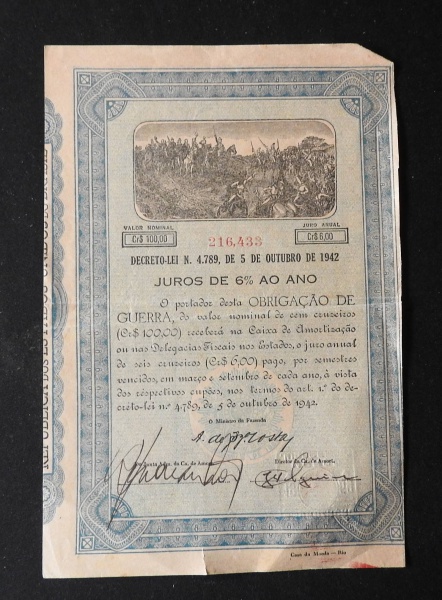 VALOR NOMINAL
JURO ANUAL
Cr$ 100,00
216,433
Cr$ 6,00
DECRETO-LEI N. 4.789, DE 5 DE OUTUBRO DE 1942
JUROS DE 6% AO ANO
O portador desta OBRIGAÇÃO DE
GUERRA, do valor nominal de cem cruzeiros
(Cr$ 100,00) receberá na Caixa de Amortização
ou nas Delegacias Fiscais nos Estados, o juro anual
de seis cruzeiros (Cr$ 6,00) pago, por semestres
vencidos, em março e setembro de cada ano, à vista
dos respectivos cupões, nos termos do art. 1.º do de-
creto-lei nº 4.789, de 5 de outubro de 1942.
O Ministro da Fazenda
Junta Adm. da Ca. de Amort.
Diretor da Caixa Amort.
Casa da Moeda - Rio